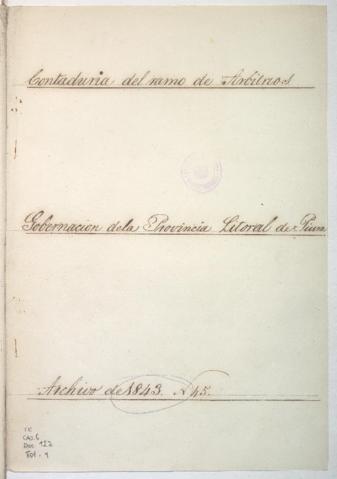 Contaduria del ramo de Arbitrios
Gobernacion de la Provincia Litoral de Piura
Archivo de 1843. N 45.
CAJ. 6
Doc. 122
Fol. 1